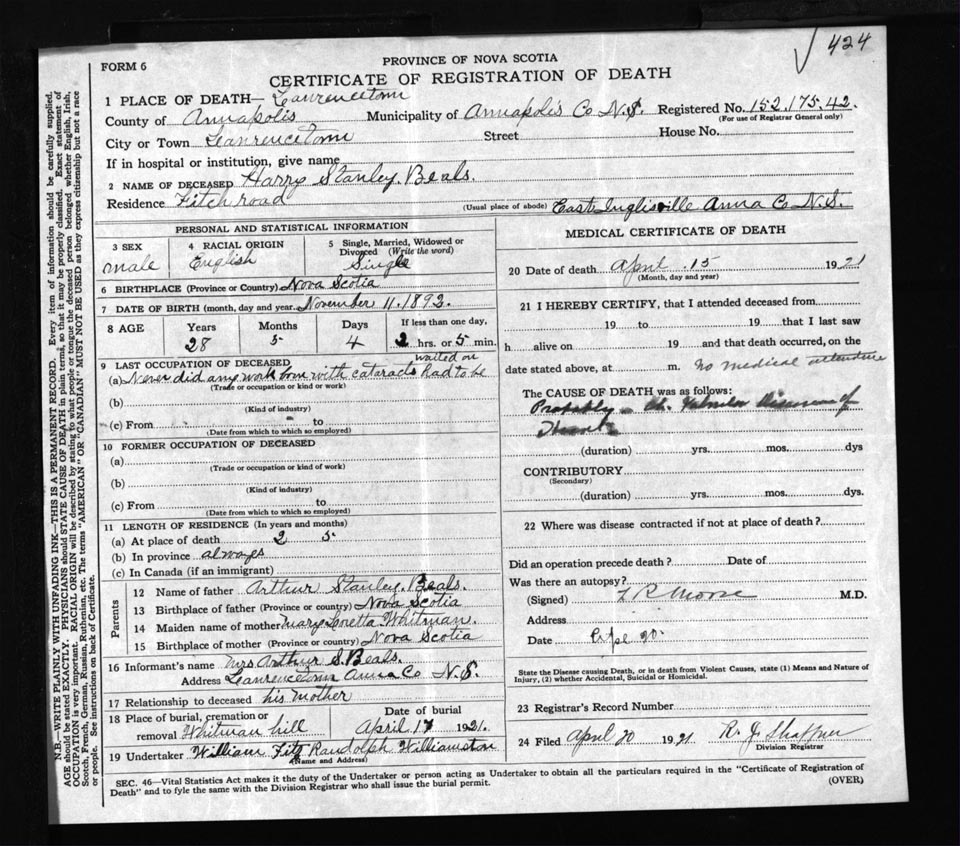 424
PROVINCE OF NOVA SCOTIA
FORM 6
CERTIFICATE OF REGISTRATION OF DEATH
1 PLACE OF DEATH— Lawrencetown
County of Annapolis Municipality of Annapolis Co N.S. Registered No. 152.175.42.
(For use of Registrar General only)
City or Town Lawrencetown Street House No.
If in hospital or institution, give name
2 NAME OF DECEASED Harry Stanley. Beals.
Residence Fitch road (Usual place of abode) East Inglisville Anna Co N.S.
PERSONAL AND STATISTICAL INFORMATION
3 SEX 4 RACIAL ORIGIN 5 Single, Married, Widowed or Divorced (Write the word)
male English Single
6 BIRTHPLACE (Province or Country) Nova Scotia
7 DATE OF BIRTH (month, day and year) November 11.1892.
8 AGE Years Months Days If less than one day,
28 5 4 2 hrs. or 5 min.
9 LAST OCCUPATION OF DECEASED waited on
(a) Never did any work born with cataracts had to be
(Trade or occupation or kind or work)
(b)
(Kind of industry)
(c) From to
(Date from which to which so employed)
10 FORMER OCCUPATION OF DECEASED
(a)
(Trade or occupation or kind of work)
(b)
(Kind of industry)
(c) From to
(Date from which to which so employed)
11 LENGTH OF RESIDENCE (In years and months)
(a) At place of death 2 5
(b) In province always
(c) In Canada (if an immigrant)
Parents
12 Name of father Arthur Stanley. Beals.
13 Birthplace of father (Province or country) Nova Scotia
14 Maiden name of mother Mary Loretta Whitman.
15 Birthplace of mother (Province or country) Nova Scotia
16 Informant's name Mrs Arthur S. Beals.
Address Lawrencetown Anna Co N.S.
17 Relationship to deceased his mother
18 Place of burial, cremation or removal Whitman hill
Date of burial
April 17 1921.
19 Undertaker William Fitz Randolph Williamston
(Name and Address)
MEDICAL CERTIFICATE OF DEATH
20 Date of death April .15 1921
(Month, day and year)
21 I HEREBY CERTIFY, that I attended deceased from
19 to 19 that I last saw
h alive on 19 and that death occurred, on the
date stated above, at m. No medical attendance
The CAUSE OF DEATH was as follows:
Probably Ch. Valvular Disease of
Heart
(duration) yrs. mos. dys
CONTRIBUTORY
(Secondary)
(duration) yrs. mos. dys.
22 Where was disease contracted if not at place of death?
Did an operation precede death? Date of
Was there an autopsy?
(Signed) L R Morse M.D.
Address
Date
State the Disease causing Death, or in death from Violent Causes, state (1) Means and Nature of
Injury, (2) whether Accidental, Suicidal or Homicidal.
23 Registrar's Record Number
24 Filed April 20 1921 R. J. Shaffner
Division Registrar
SEC. 46—Vital Statistics Act makes it the duty of the Undertaker or person acting as Undertaker to obtain all the particulars required in the "Certificate of Registration of
Death" and to fyle the same with the Division Registrar who shall issue the burial permit. (OVER)
N.B.—WRITE PLAINLY WITH UNFADING INK—THIS IS A PERMANENT RECORD. Every item of information should be carefully supplied.
AGE should be stated EXACTLY. PHYSICIANS should STATE CAUSE OF DEATH in plain terms, so that it may be properly classified. Exact statement of
OCCUPATION is very important. RACIAL ORIGIN will be described by stating to what people or tongue the deceased person belonged whether English, Irish,
Scotch, French, German, Russian, Ruthenian, etc. The terms "AMERICAN" OR "CANADIAN" MUST NOT BE USED as they express citizenship but not a race
or people. See instructions on back of Certificate.